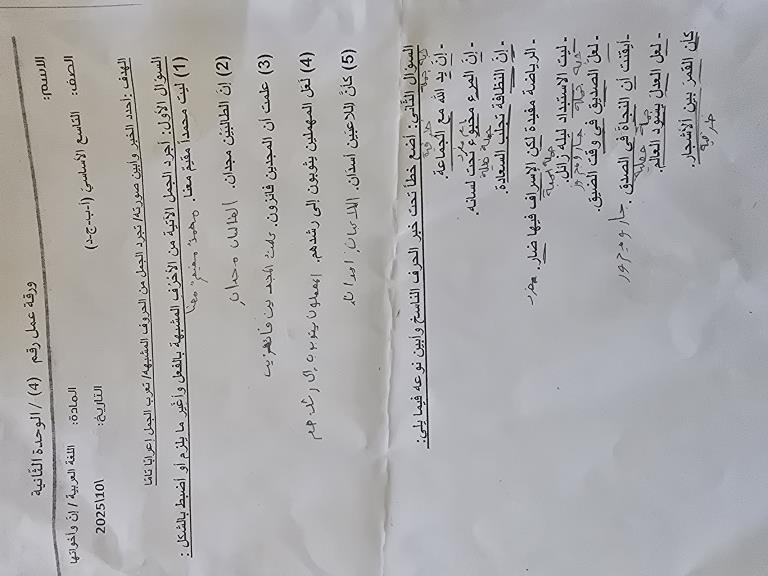 ورقة عمل رقم (4) / الوحدة الثانية
الاسم: المادة: اللغة العربية / إن وأخواتها
الصف: التاسع الأساسي (أ-ب-ج-د) التاريخ: \10\2025
الهدف: أحدد الخبر وأبين صورته/ تجرد الجمل من الحروف المشبهة/ تعرب الجمل إعرابا تاما
السؤال الأول: أجرد الجمل الآتية من الأحرف المشبهة بالفعل وأغير ما يلزم أو أضبط بالشكل:
(1) ليت محمدا مقيم معنا. محمد مقيم معنا
(2) إن الطالبين مجدان. الطالبان مجدان
(3) علمت أن المجدين فائزون. علمت المجدين فائزين
(4) لعل المهملين يثوبون إلى رشدهم. المهملون يثوبون إلى رشدهم
(5) كأن اللاعبين أسدان. اللاعبان اسدان
السؤال الثاني: أضع خطا تحت خبر الحرف الناسخ وأبين نوعه فيما يلي:
- إن يد الله مع الجماعة.
- إن المرء مخبوء تحت لسانه.
- إن النظافة تجلب السعادة.
- الرياضة مفيدة لكن الإسراف فيها ضار. مفرد
- ليت الاستبداد ليله زائل.
- لعل الصديق في وقت الضيق.
- أيقنت أن النجاة في الصدق. جار ومجرور
- لعل العدل يسود العالم.
كأن القمر بين الأشجار.
ظرفية